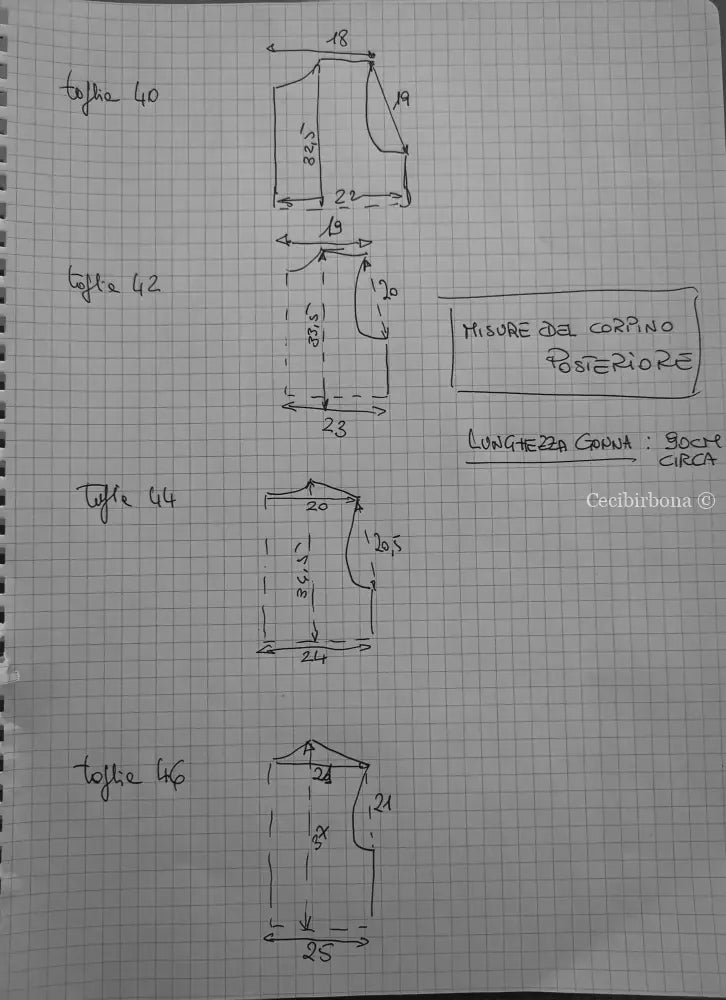 18
taglia 40
19
32,5
22
19
taglia 42
20
33,5
MISURE DEL CORPINO
POSTERIORE
23
LUNGHEZZA GONNA : 90CM
CIRCA
taglia 44
20
Cecibirbona ©
20,5
34,5
24
taglia 46
21
21
25